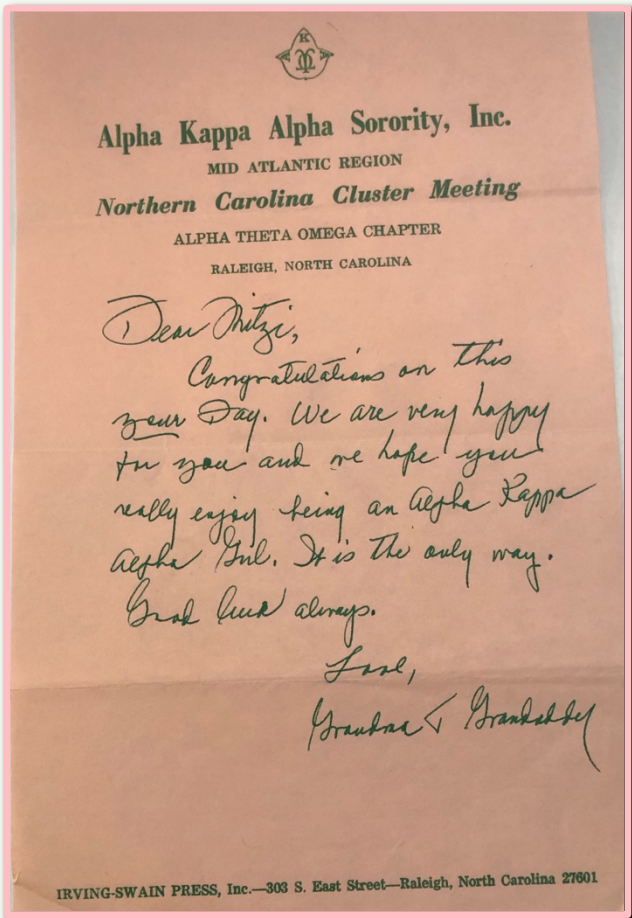 Alpha Kappa Alpha Sorority, Inc.
MID ATLANTIC REGION
Northern Carolina Cluster Meeting
ALPHA THETA OMEGA CHAPTER
RALEIGH, NORTH CAROLINA
Dear Mitzi,
Congratulations on this
your Day. We are very happy
for you and we hope you
really enjoy being an Alpha Kappa
Alpha Girl. It is the only way.
Good luck always.
Love,
Grandma & Grandaddy
IRVING-SWAIN PRESS, Inc.—303 S. East Street—Raleigh, North Carolina 27601